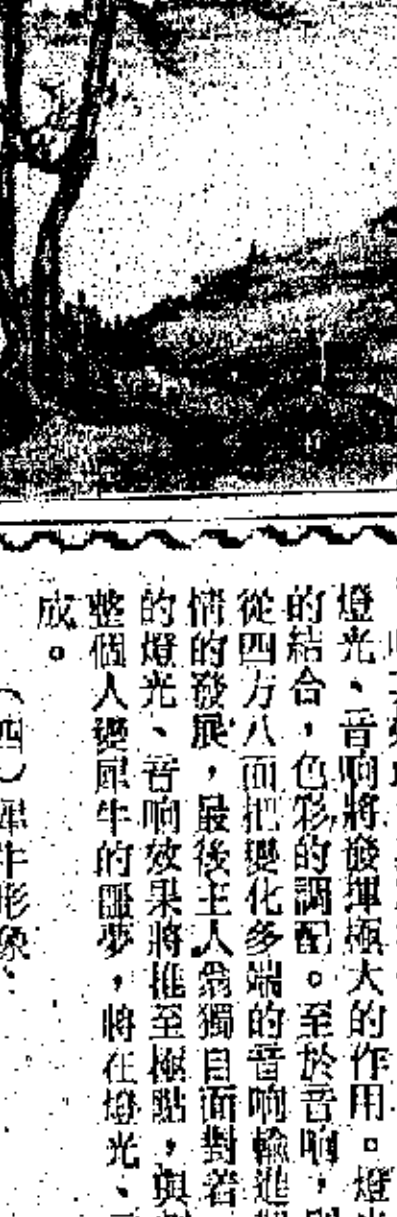 燈光、音响將發揮極大的作用。燈
的結合，色彩的調配。至於音响，則
從四方八面把變化多端的音响輸進
情的發展，最後主人翁獨自面對着
的燈光、音响效果將推至極點，與
整個人變犀牛的噩夢，將在燈光、
成。
（四）犀牛形象、